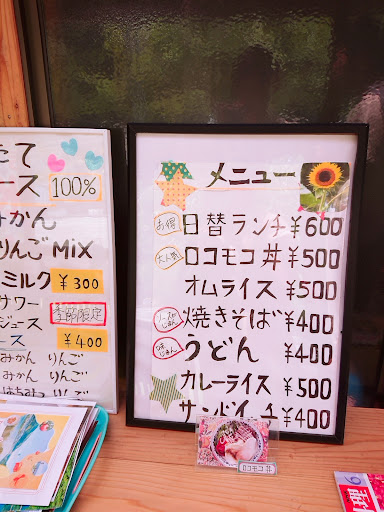 たて
ース 100%
みかん
りんご MIX
ミルク ¥300
サワー 季節限定
ジュース
ース ¥400
みかん りんご
みかん りんご
はちみつ りんご
メニュー
お得 日替ランチ ¥600
大人気 ロコモコ丼 ¥500
オムライス ¥500
焼きそば ¥400
うどん ¥400
カレーライス ¥500
サンドイッチ ¥400
ロコモコ丼